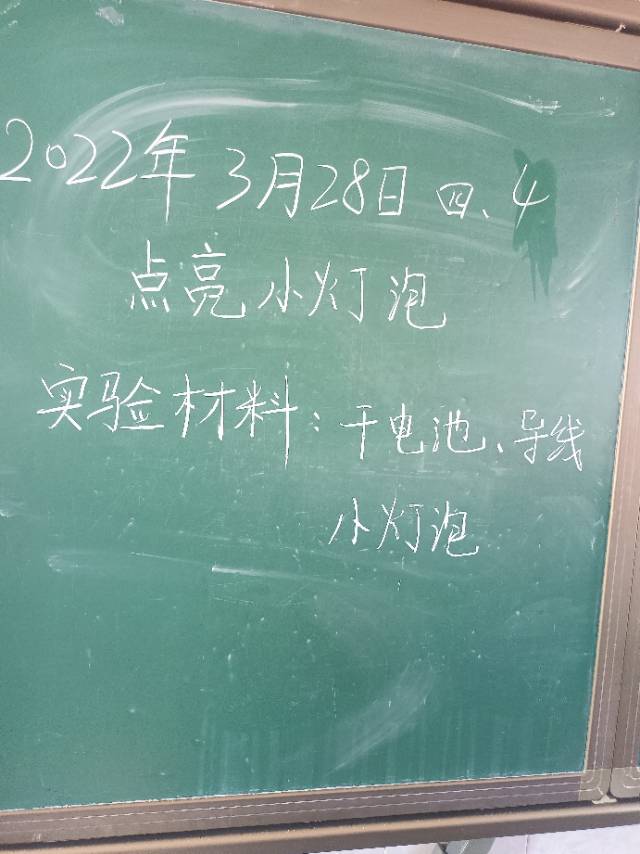 2022年3月28日 四、4
点亮小灯泡
实验材料：干电池、导线
小灯泡